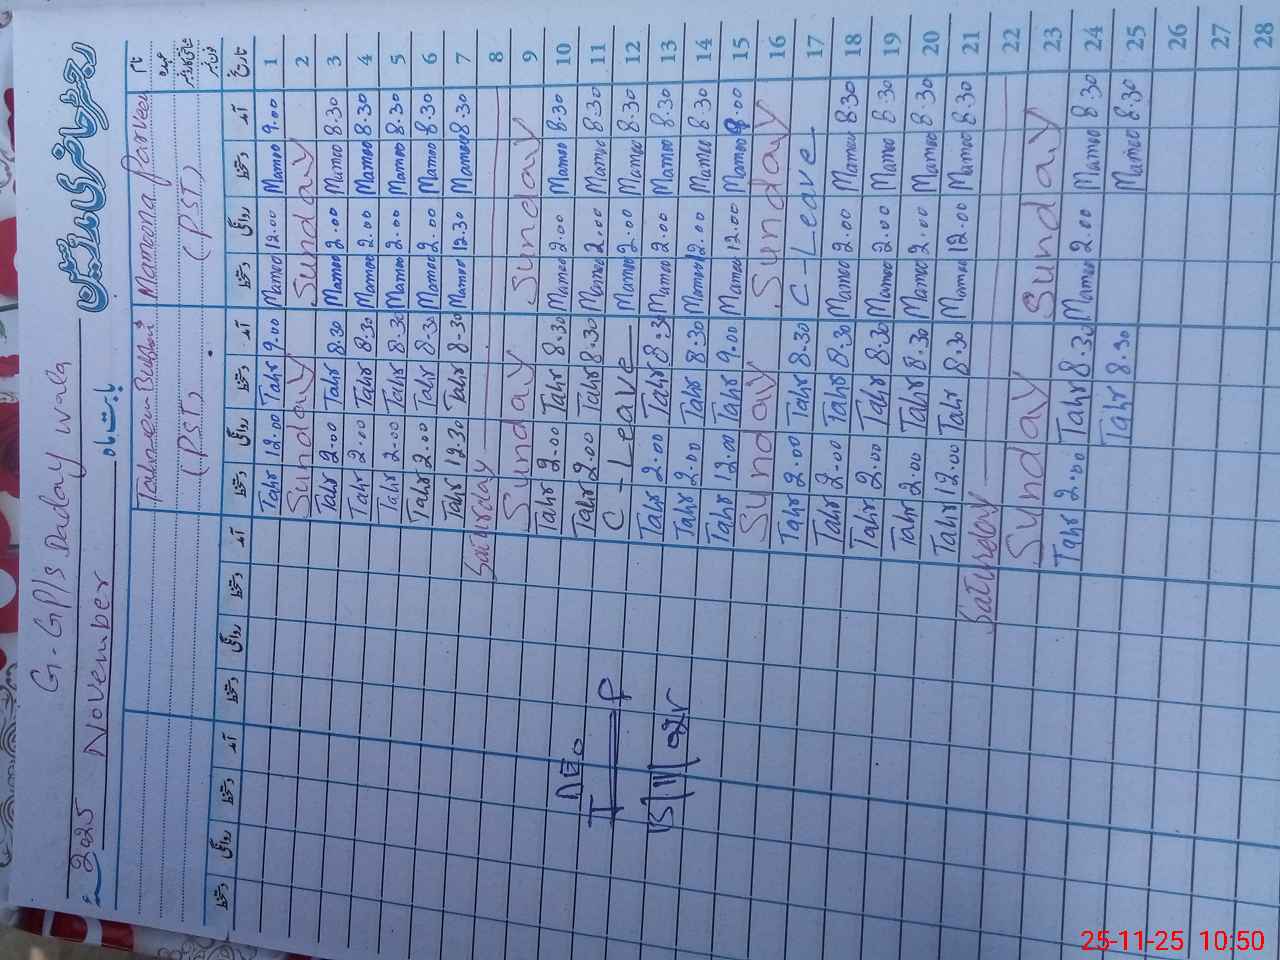 رجسٹر حاضری مدرسین
G-GP/s Daday wala
2025 November بابت ماہ
نام Mamoona Parveen Tahseen Bulqsum
عہدہ
(PST) (PST)
تاریخ آمد دستخط روانگی دستخط آمد دستخط روانگی دستخط آمد دستخط روانگی دستخط آمد دستخط روانگی دستخط
1 9.00 Mamoo 12.00 Mamoo 9.00 Tahr 12.00 Tahr
2 Sunday Sunday
3 8.30 Mamoo 2.00 Mamoo 8.30 Tahr 2.00 Tahr
4 8.30 Mamoo 2.00 Mamoo 8.30 Tahr 2.00 Tahr
5 8.30 Mamoo 2.00 Mamoo 8.30 Tahr 2.00 Tahr
6 8.30 Mamoo 2.00 Mamoo 8.30 Tahr 2.00 Tahr
7 8.30 Mamoo 12.30 Mamoo 8.30 Tahr 12.30 Tahr
8 Saturday
9 Sunday Sunday
10 8.30 Mamoo 2.00 Mamoo 8.30 Tahr 2.00 Tahr
11 8.30 Mamoo 2.00 Mamoo 8.30 Tahr 2.00 Tahr
12 8.30 Mamoo 2.00 Mamoo C-Leave
13 8.30 Mamoo 2.00 Mamoo 8.30 Tahr 2.00 Tahr
14 8.30 Mamoo 2.00 Mamoo 8.30 Tahr 2.00 Tahr
15 9.00 Mamoo 12.00 Mamoo 9.00 Tahr 12.00 Tahr
16 Sunday Sunday
17 C-Leave 8.30 Tahr 2.00 Tahr
18 8.30 Mamoo 2.00 Mamoo 8.30 Tahr 2.00 Tahr
19 8.30 Mamoo 2.00 Mamoo 8.30 Tahr 2.00 Tahr
20 8.30 Mamoo 2.00 Mamoo 8.30 Tahr 2.00 Tahr
21 8.30 Mamoo 12.00 Mamoo 8.30 Tahr 12.00 Tahr
22 Saturday
23 Sunday Sunday
24 8.30 Mamoo 2.00 Mamoo 8.30 Tahr 2.00 Tahr
25 8.30 Mamoo 8.30 Tahr
26
27
28
AEo
25-11-25 10:50